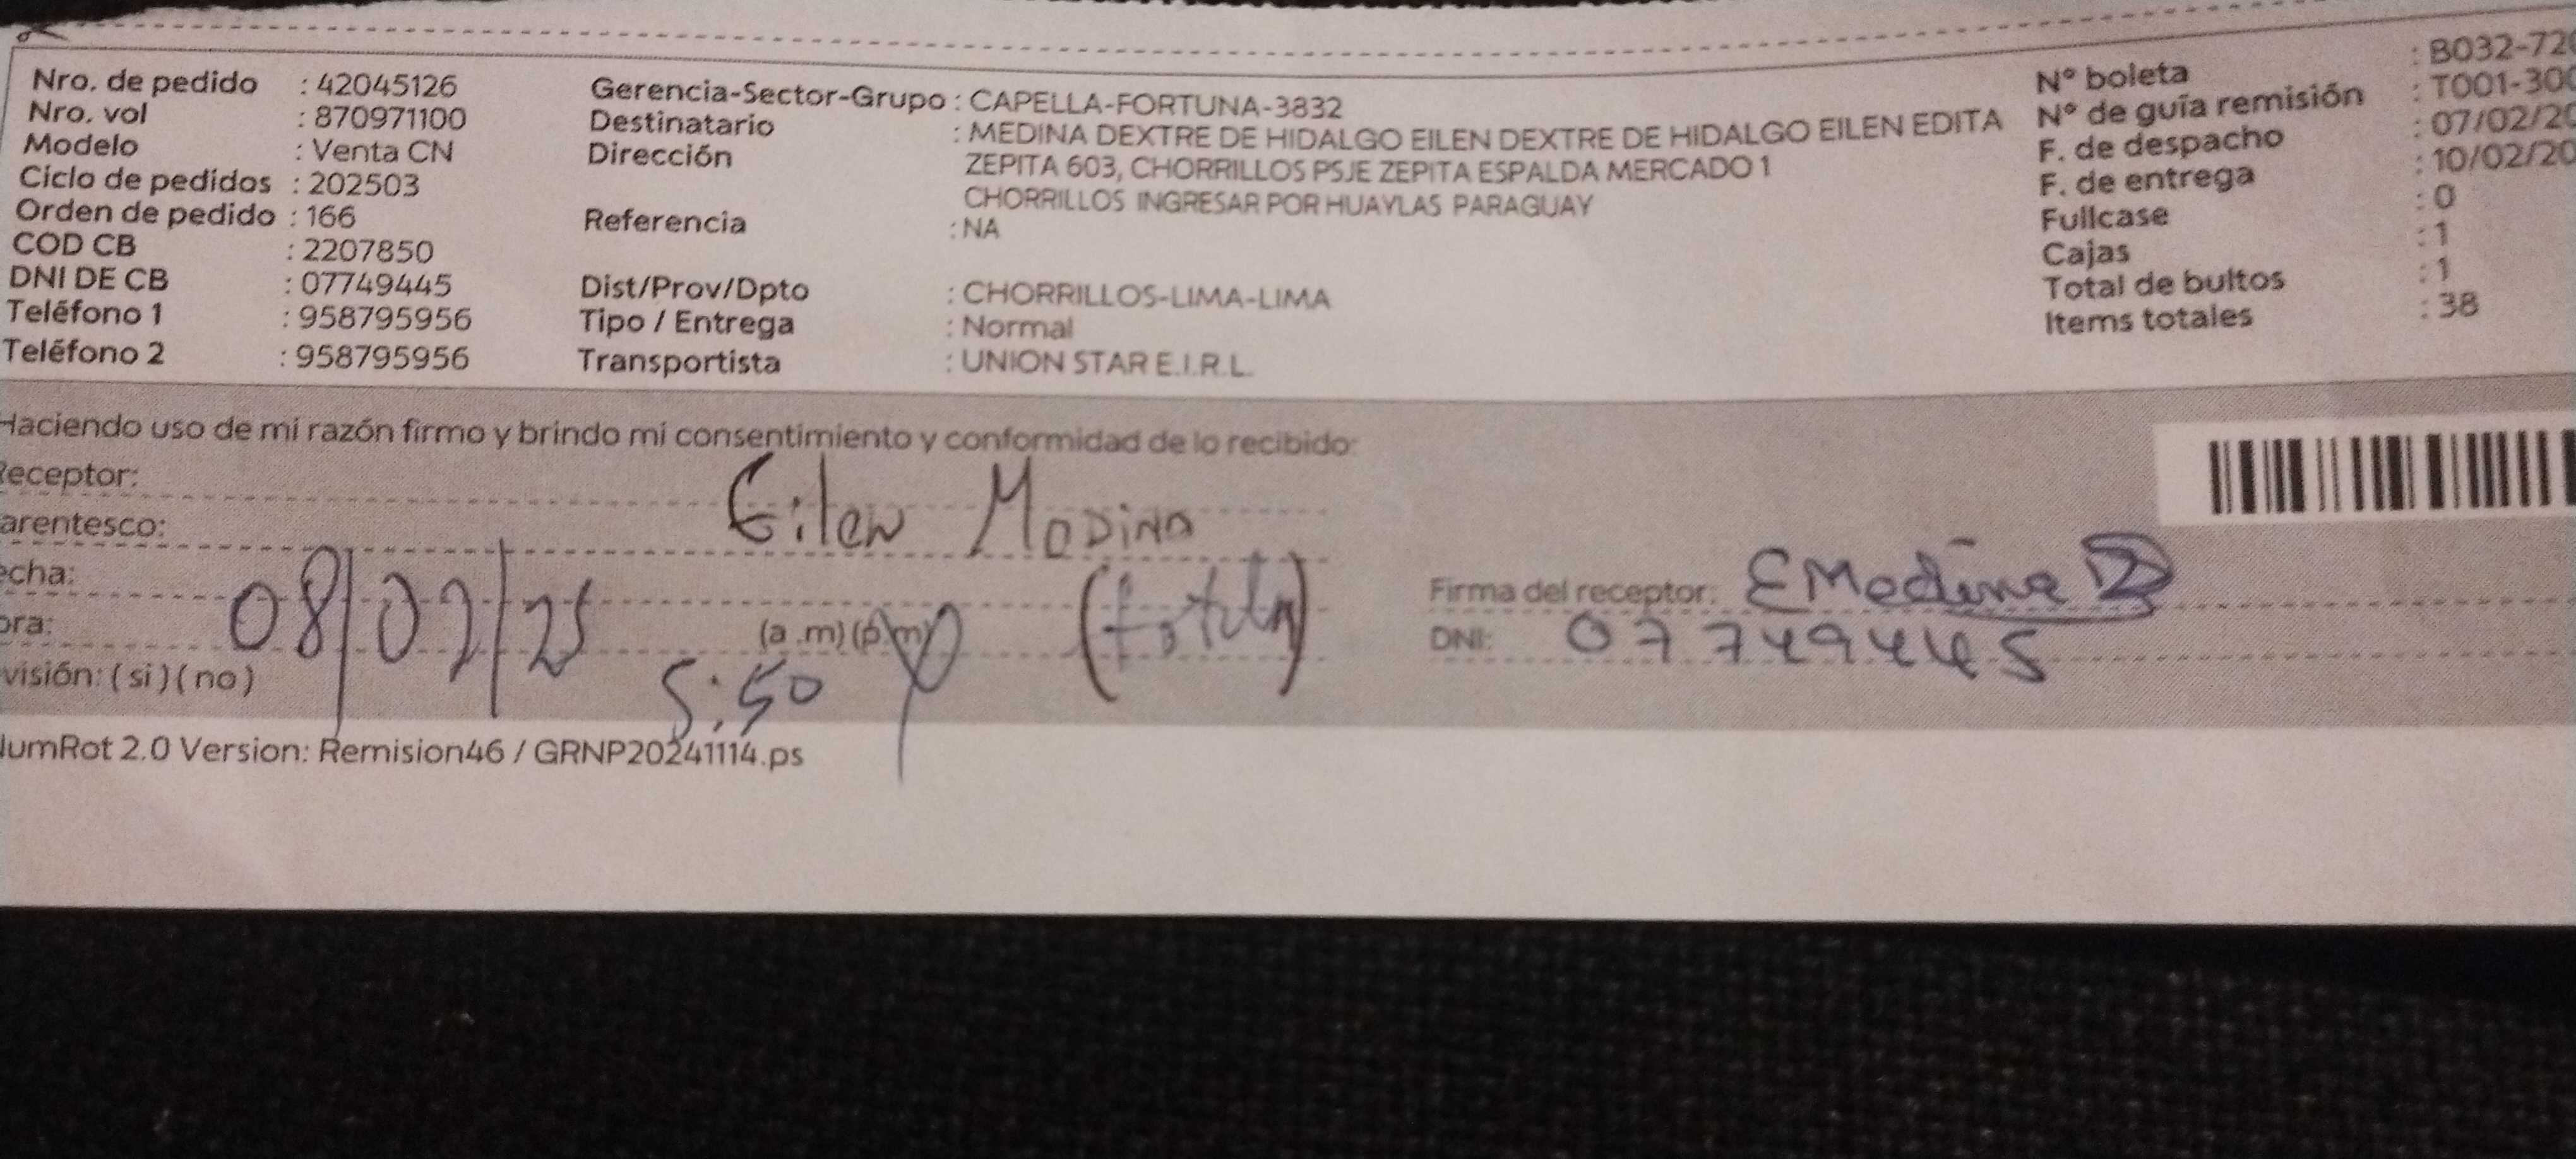 Nro. de pedido : 42045126
Nro. vol : 870971100
Modelo : Venta CN
Ciclo de pedidos : 202503
Orden de pedido : 166
COD CB : 2207850
DNI DE CB : 07749445
Teléfono 1 : 958795956
Teléfono 2 : 958795956
Gerencia-Sector-Grupo : CAPELLA-FORTUNA-3832
Destinatario : MEDINA DEXTRE DE HIDALGO EILEN DEXTRE DE HIDALGO EILEN EDITA
Dirección ZEPITA 603, CHORRILLOS PSJE ZEPITA ESPALDA MERCADO 1
CHORRILLOS INGRESAR POR HUAYLAS PARAGUAY
Referencia : NA
Dist/Prov/Dpto : CHORRILLOS-LIMA-LIMA
Tipo / Entrega : Normal
Transportista : UNION STAR E.I.R.L.
Nº boleta : B032-72
Nº de guía remisión : T001-300
F. de despacho : 07/02/20
F. de entrega : 10/02/20
Fullcase : 0
Cajas : 1
Total de bultos : 1
Items totales : 38
Haciendo uso de mi razón firmo y brindo mi consentimiento y conformidad de lo recibido:
Receptor: Eilen Medina
arentesco:
echa: 08/02/25
ora: (a .m) (p.m) 5:50
visión: ( si ) ( no )
Firma del receptor: EMedina
DNI: 07749445
NumRot 2.0 Version: Remision46 / GRNP20241114.ps